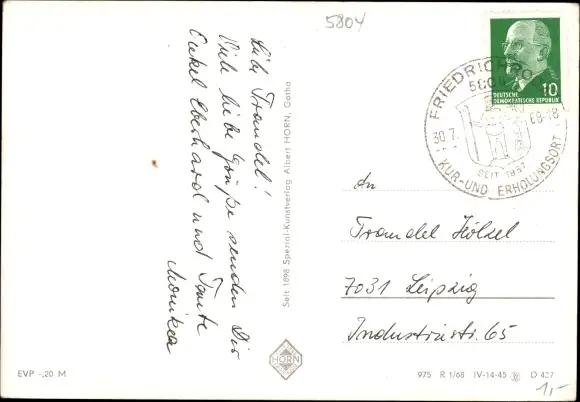 5804
Liebe Traudel!
Viele liebe Grüße senden Dir
Onkel Eberhard und Tante
Monika
Seit 1898 Spezial-Kunstverlag Albert HORN, Gotha
HORN
EVP -,20 M
DEUTSCHE
DEMOKRATISCHE REPUBLIK
10
FRIEDRICHRO
5804
30.7.
68-18
SEIT 1837
KUR- UND ERHOLUNGSORT
An
Traudel Hölzel
7031 Leipzig
Industriestr. 65
975 R 1/68 IV-14-45 D 427
1,-